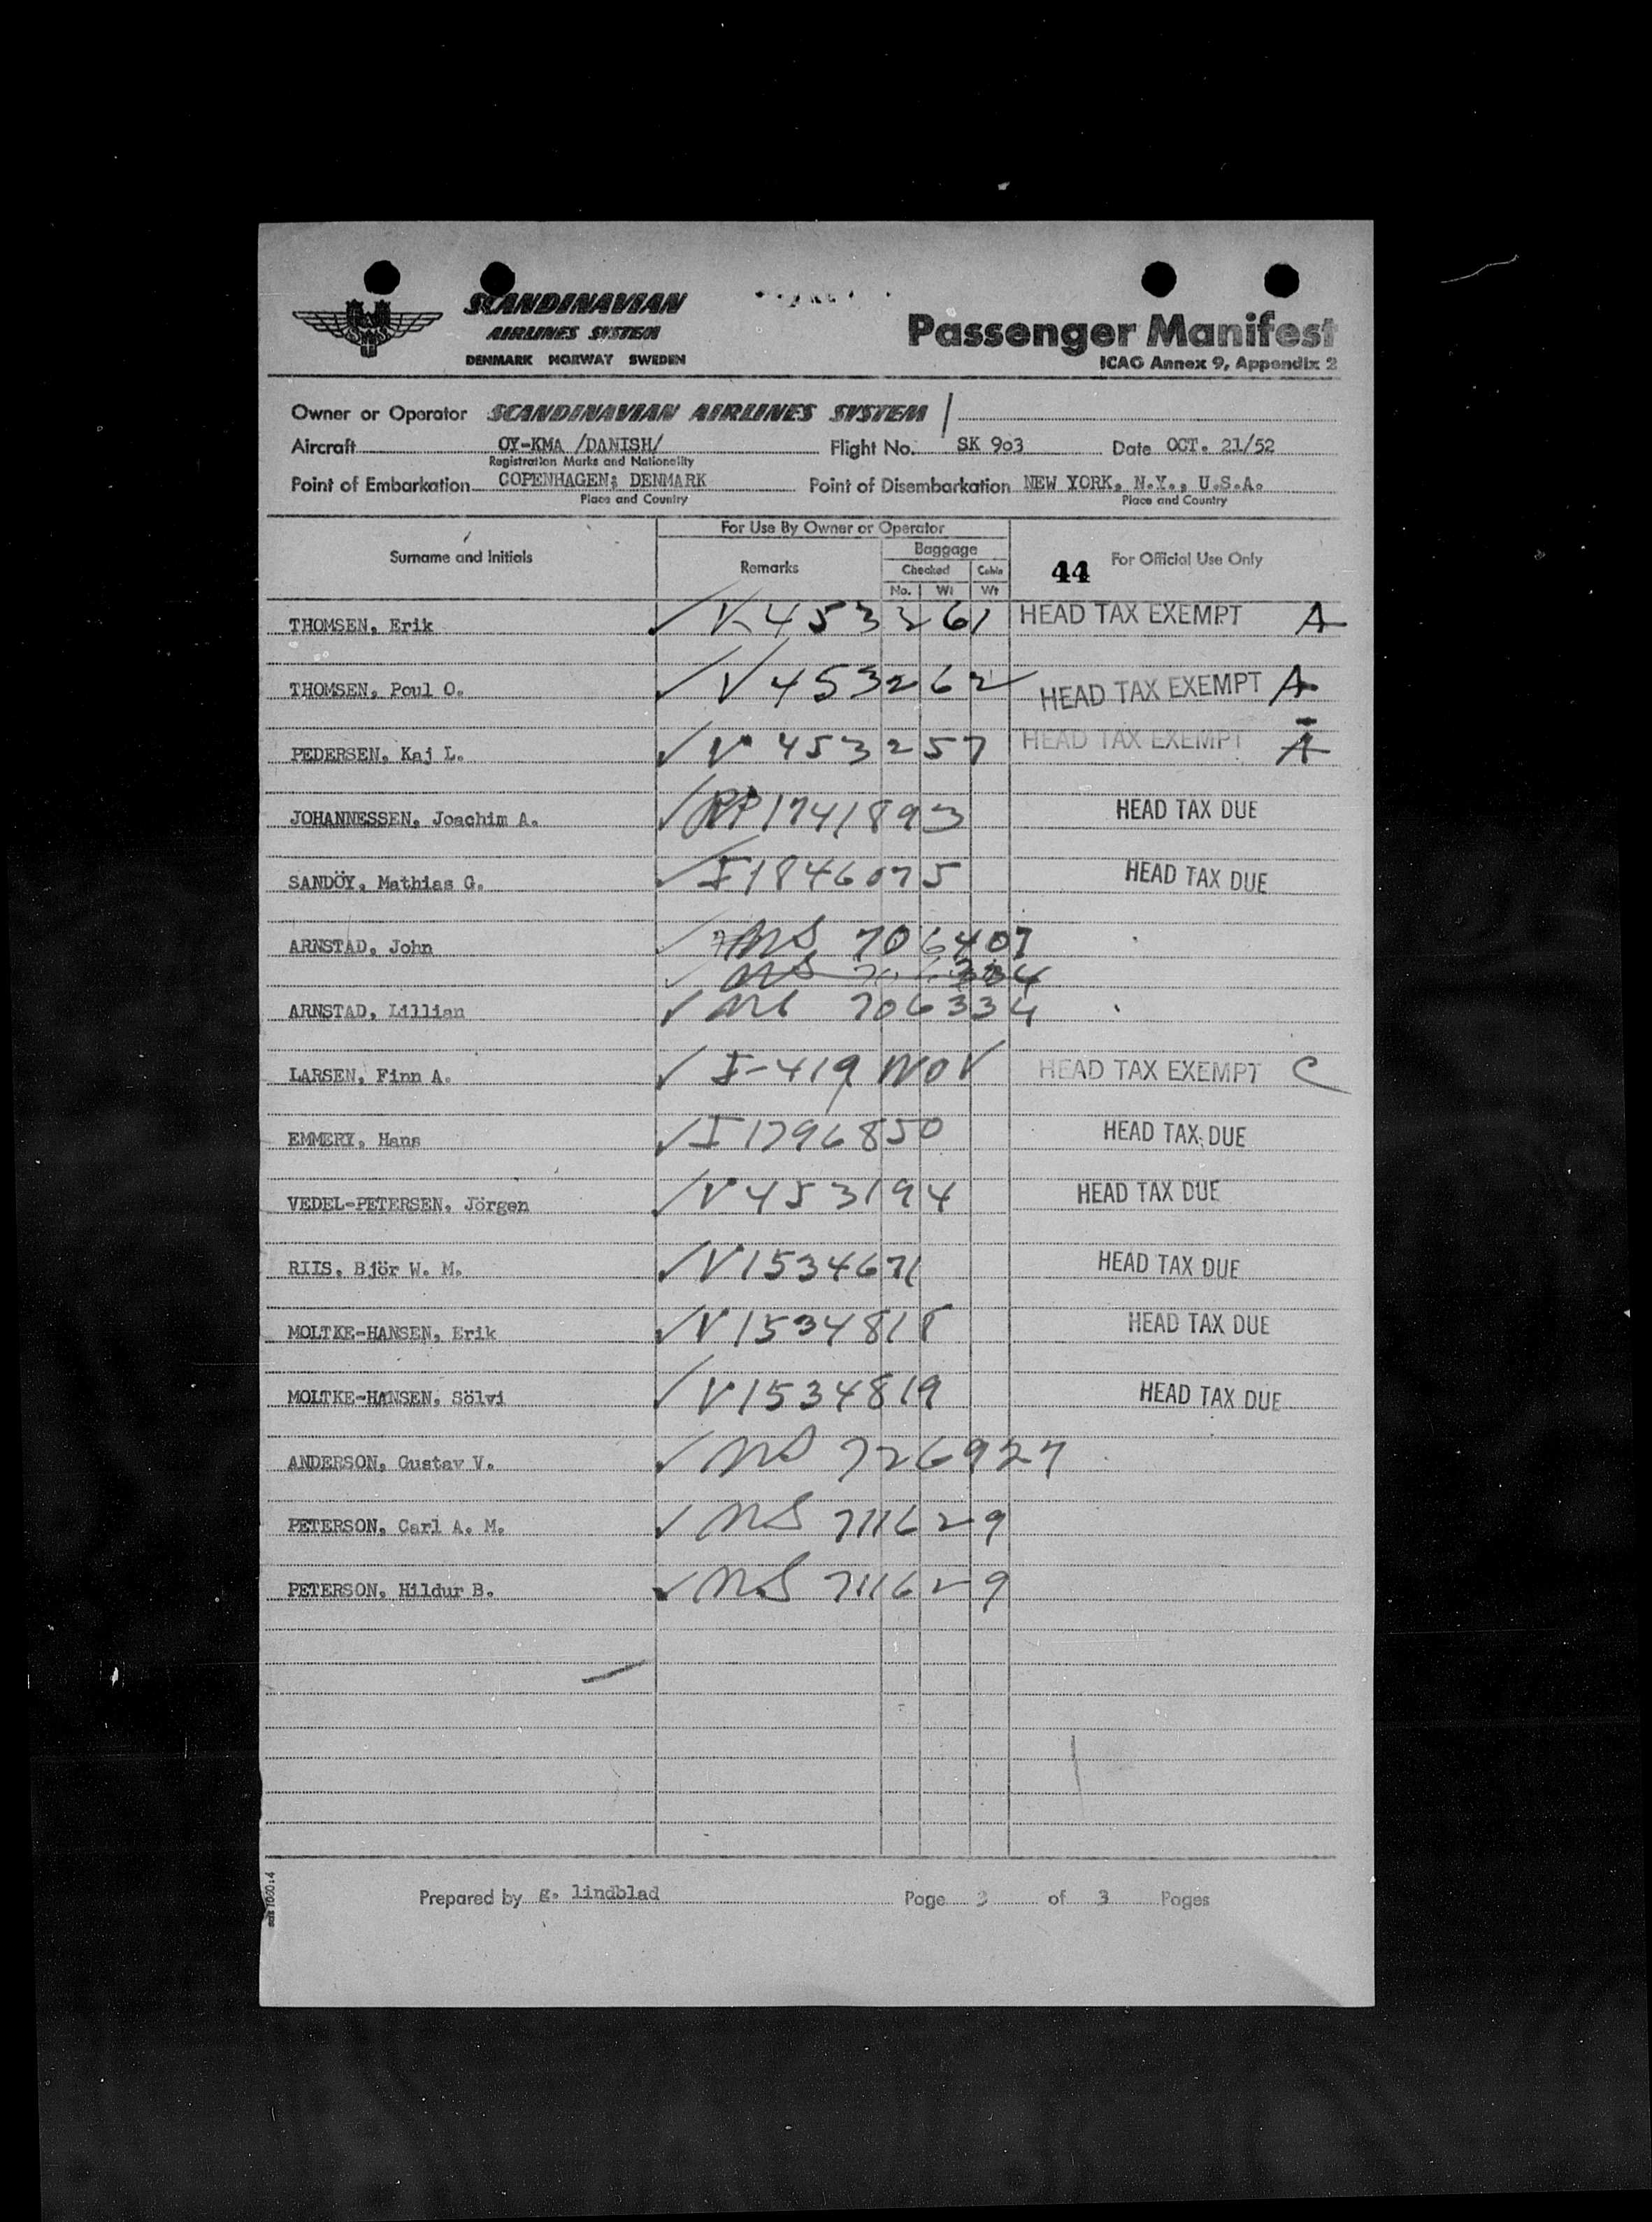 SCANDINAVIAN
AIRLINES SYSTEM
DENMARK NORWAY SWEDEN
Passenger Manifest
ICAO Annex 9, Appendix 2
Owner or Operator SCANDINAVIAN AIRLINES SYSTEM
Aircraft OY-KMA /DANISH/ Flight No. SK 903 Date OCT. 21/52
Registration Marks and Nationality
Point of Embarkation COPENHAGEN; DENMARK Point of Disembarkation NEW YORK, N.Y., U.S.A.
Place and Country Place and Country
For Use By Owner or Operator
Surname and Initials Remarks Baggage 44 For Official Use Only
Checked Cabin
No. Wt Wt
THOMSEN, Erik V 453261 HEAD TAX EXEMPT A
THOMSEN, Poul O. V 453262 HEAD TAX EXEMPT A
PEDERSEN, Kaj L. V 453257 HEAD TAX EXEMPT A
JOHANNESSEN, Joachim A. RP 1741893 HEAD TAX DUE
SANDÖY, Mathias G. I 1846075 HEAD TAX DUE
ARNSTAD, John 706407
ARNSTAD, Lillian 706334
LARSEN, Finn A. I-419 NOV HEAD TAX EXEMPT C
EMMERY, Hans I 1796850 HEAD TAX DUE
VEDEL-PETERSEN, Jörgen V 453194 HEAD TAX DUE
RIIS, Björ W. M. V 1534671 HEAD TAX DUE
MOLTKE-HANSEN, Erik V 1534818 HEAD TAX DUE
MOLTKE-HANSEN, Sölvi V 1534819 HEAD TAX DUE
ANDERSON, Gustav V. NS 726927
PETERSON, Carl A. M. NS 711629
PETERSON, Hildur B. NS 711629
Prepared by g. lindblad Page 3 of 3 Pages